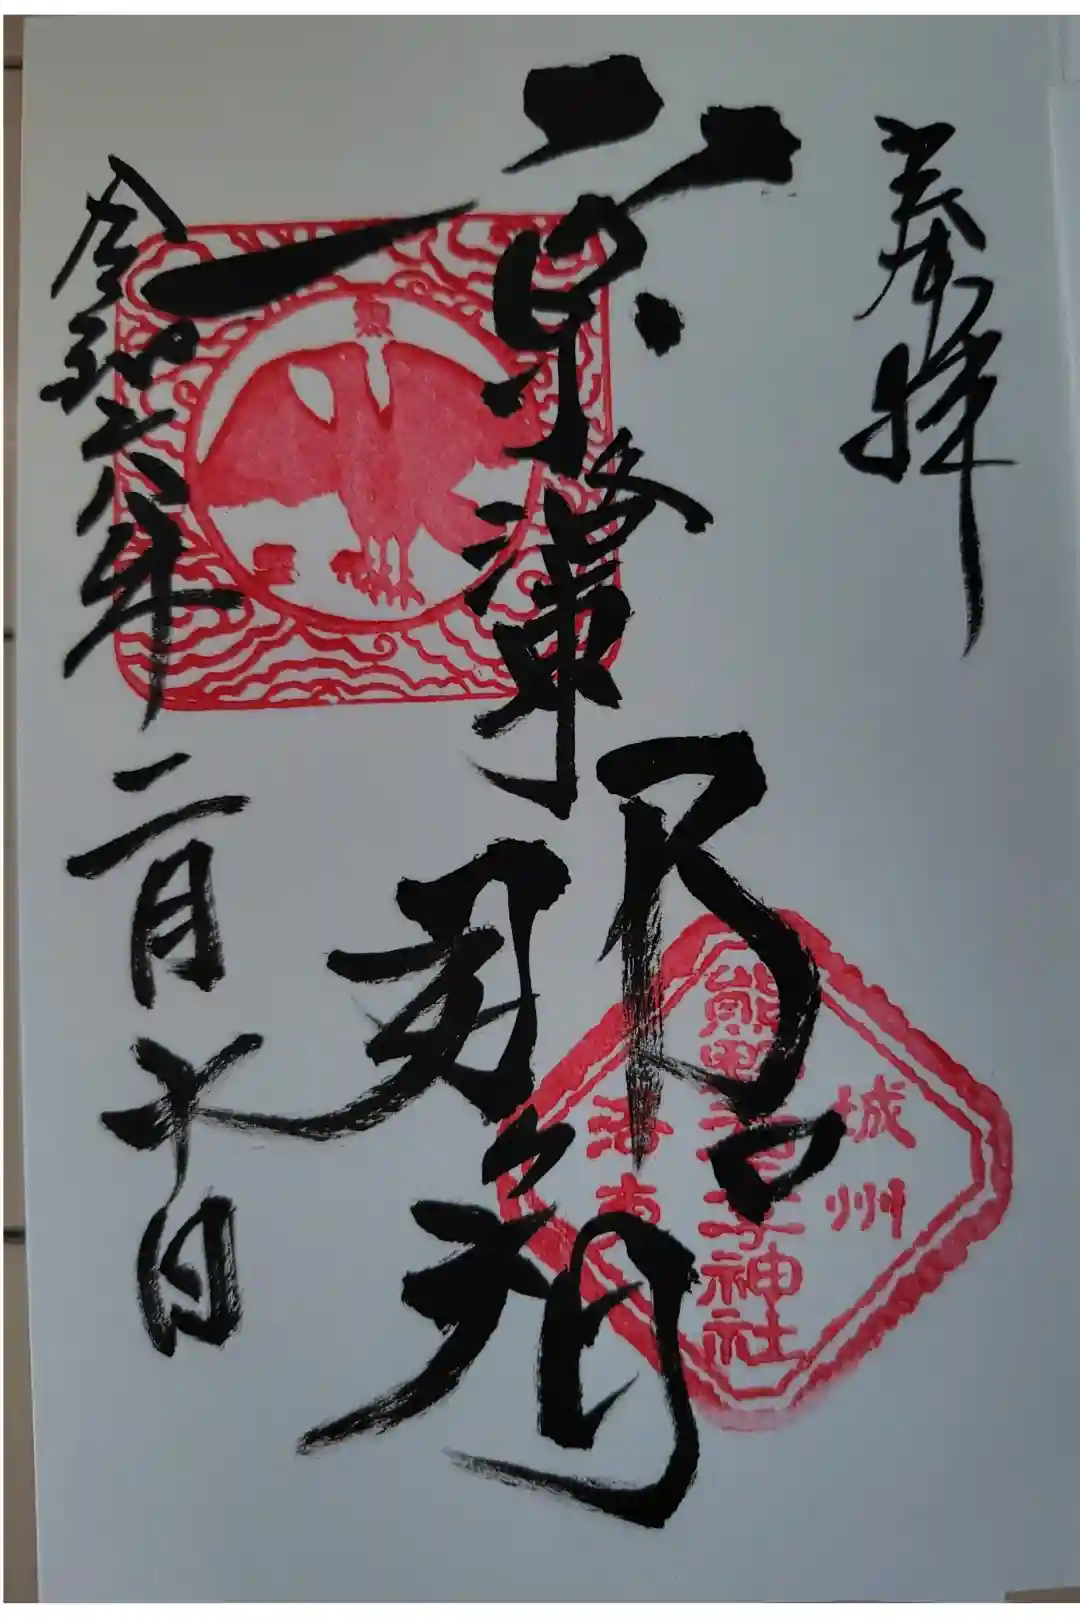 奉拝
京洛東
那智
令和六年二月十日
城州
熊野若王子神社
洛東